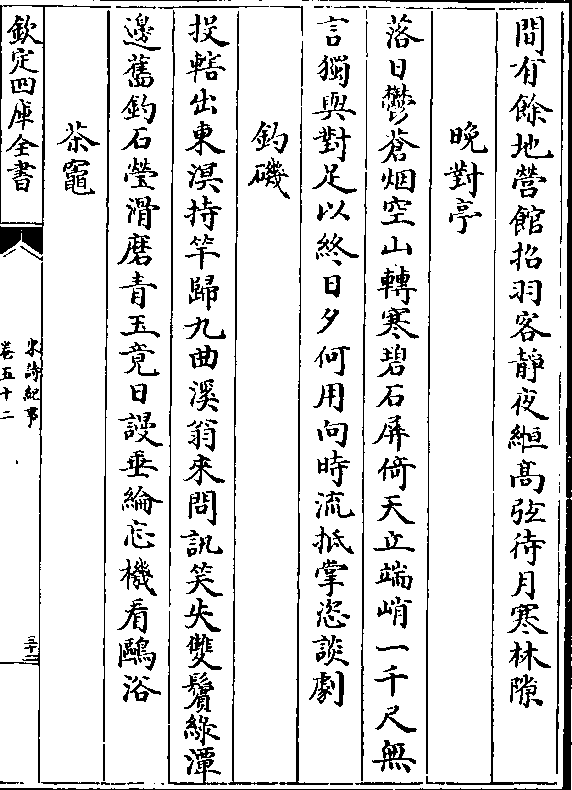 間有餘地營館招羽客靜夜緪髙弦待月寒林隙
晚對亭
落日鬱蒼烟空山轉寒碧石屏倚天立端峭一千尺無
言獨與對足以終日夕何用向時流抵掌恣談劇
釣磯
投轄出東溟持竿歸九曲溪翁來問訊笑失雙鬢綠潭
邊舊釣石瑩滑磨青玉竟日謾垂綸忘機看鷗浴
茶竈
欽定四庫全書
宋詩紀事
卷五十二
三十三